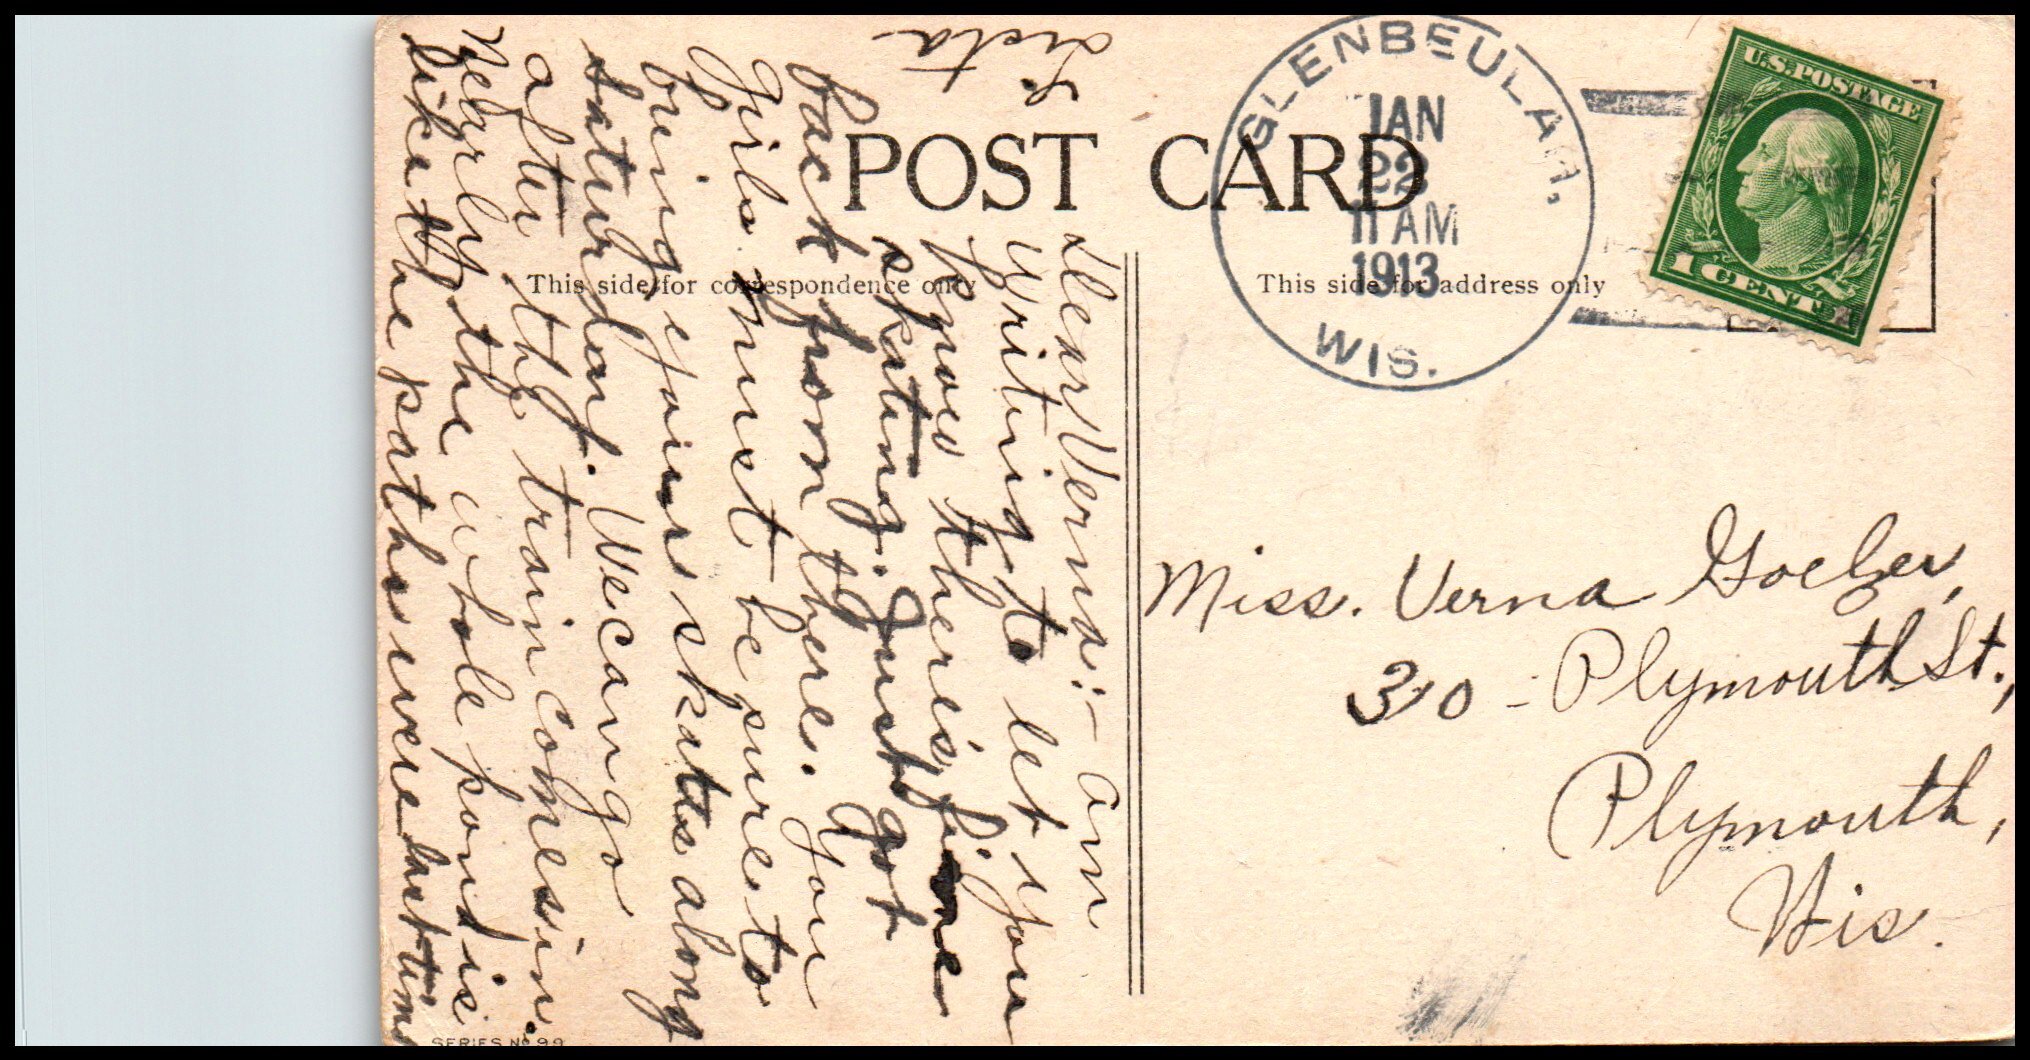 POST CARD
This side for correspondence only
This side for address only
GLENBEULAH,
JAN
22
11 AM
1913
WIS.
U.S. POSTAGE
1 CENT 1
Dear Verna:- Am
writing to let you
know ther is fine
skating. Just got
back from there. You
girls must be sure to
bring yours skates along
saturday. We can go
after the train comes in.
Nearly the whole pond is
like the paths were last time
Lieta
Miss. Verna Goelzer,
310 - Plymouth St.,
Plymouth,
Wis.
SERIES No 99